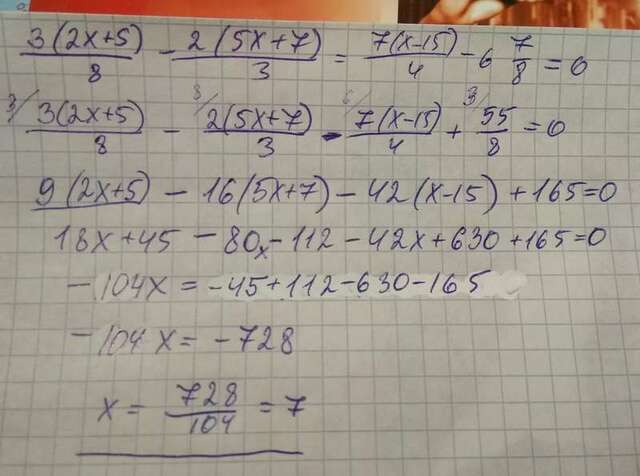 3(2x+5)/8 - 2(5x+7)/3 = 7(x-15)/4 - 6 7/8 = 0
3/ 3(2x+5)/8 - 8/ 2(5x+7)/3 - 6/ 7(x-15)/4 + 3/ 55/8 = 0
9(2x+5) - 16(5x+7) - 42(x-15) + 165=0
18x+45 - 80x - 112 - 42x + 630 + 165=0
- 104x = -45+112-630-165
- 104x = -728
x = 728/104 = 7